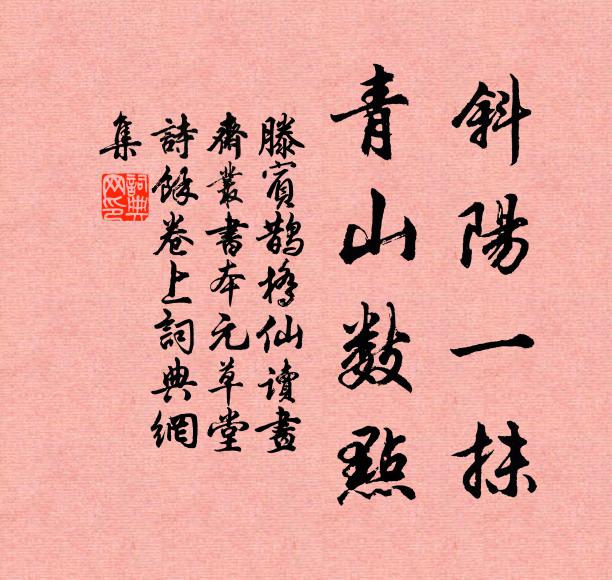 斜陽一抹
青山數點
滕賓鵲橋仙讀畫
齋叢書本元草堂
詩餘卷上詞典網
集
詞典網印